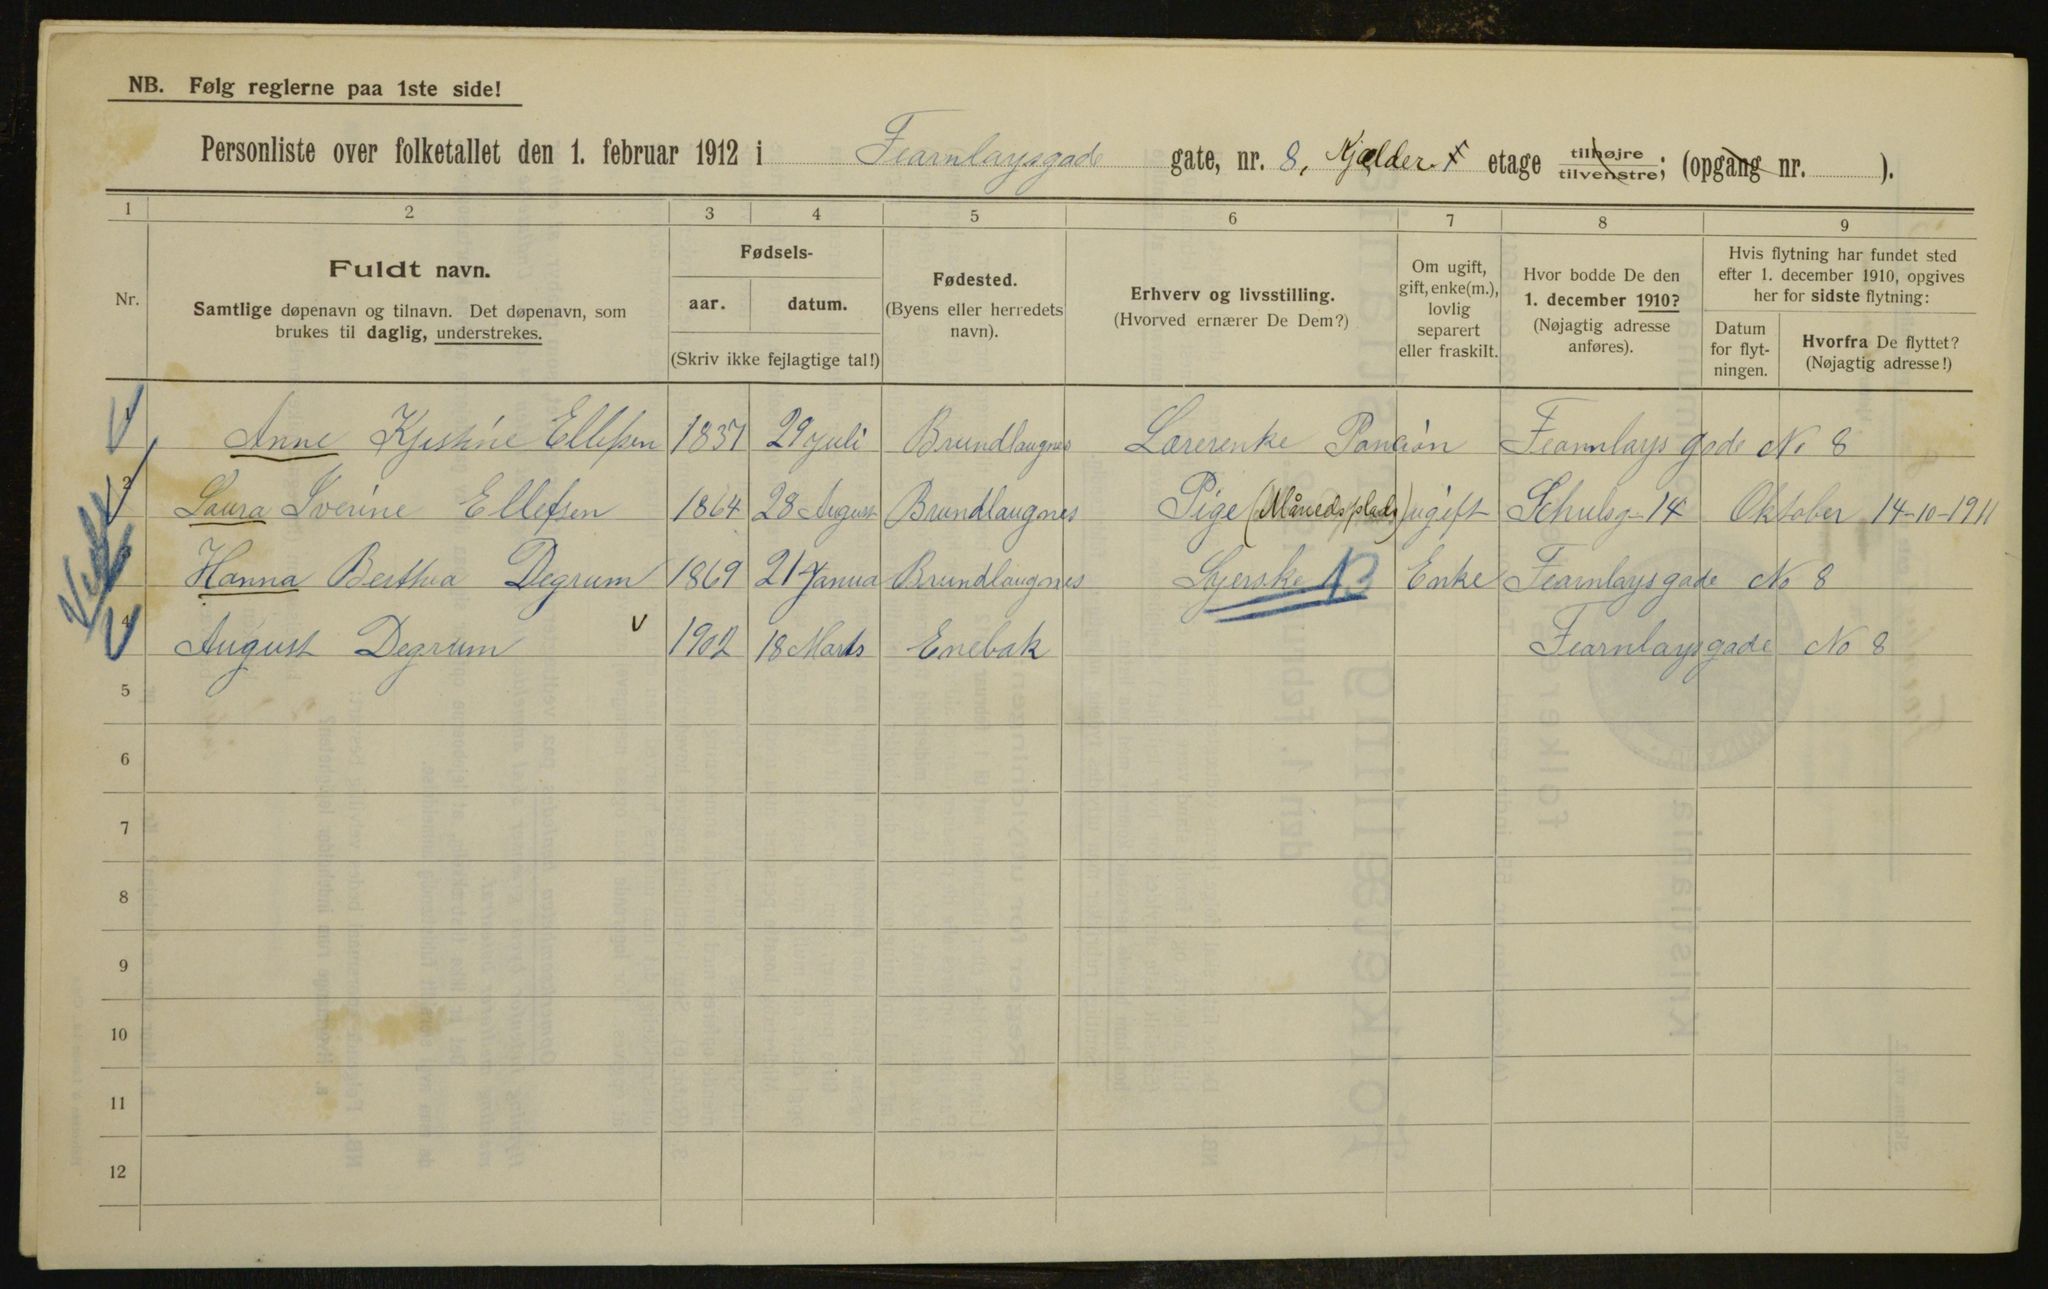 NB. Følg reglerne paa 1ste side!
Personliste over folketallet den 1. februar 1912 i Fearnlaysgade gate, nr. 8, Kjælder etage tilhøjre tilvenstre; (opgang nr. ).
1 2 3 4 5 6 7 8 9
Nr.
Fuldt navn.
Samtlige døpenavn og tilnavn. Det døpenavn, som
brukes til daglig, understrekes.
Fødsels-
aar. datum.
(Skriv ikke fejlagtige tal!)
Fødested.
(Byens eller herredets
navn).
Erhverv og livsstilling.
(Hvorved ernærer De Dem?)
Om ugift,
gift, enke(m.),
lovlig
separert
eller fraskilt.
Hvor bodde De den
1. december 1910?
(Nøjagtig adresse
anføres).
Hvis flytning har fundet sted
efter 1. december 1910, opgives
her for sidste flytning:
Datum
for flyt-
ningen.
Hvorfra De flyttet?
(Nøjagtig adresse!)
1 Anne Kjestine Ellefsen 1837 29 juli Brundlaugnes Lærerenke Pancion Fearnlays gade No 8
2 Laura Iverine Ellefsen 1864 28 August Brundlaugnes Pige (Månedsplads) ugift Schulsg 14 Oktober 14-10-1911
Hanna Berthea Degrum 1869 21 Janua Brundlaugnes Syerske Enke Fearnlaysgade No 8
4 August Degrum v 1902 18 Marts Enebak Fearnlaysgade No 8
5
6
7
8
9
10
11
12